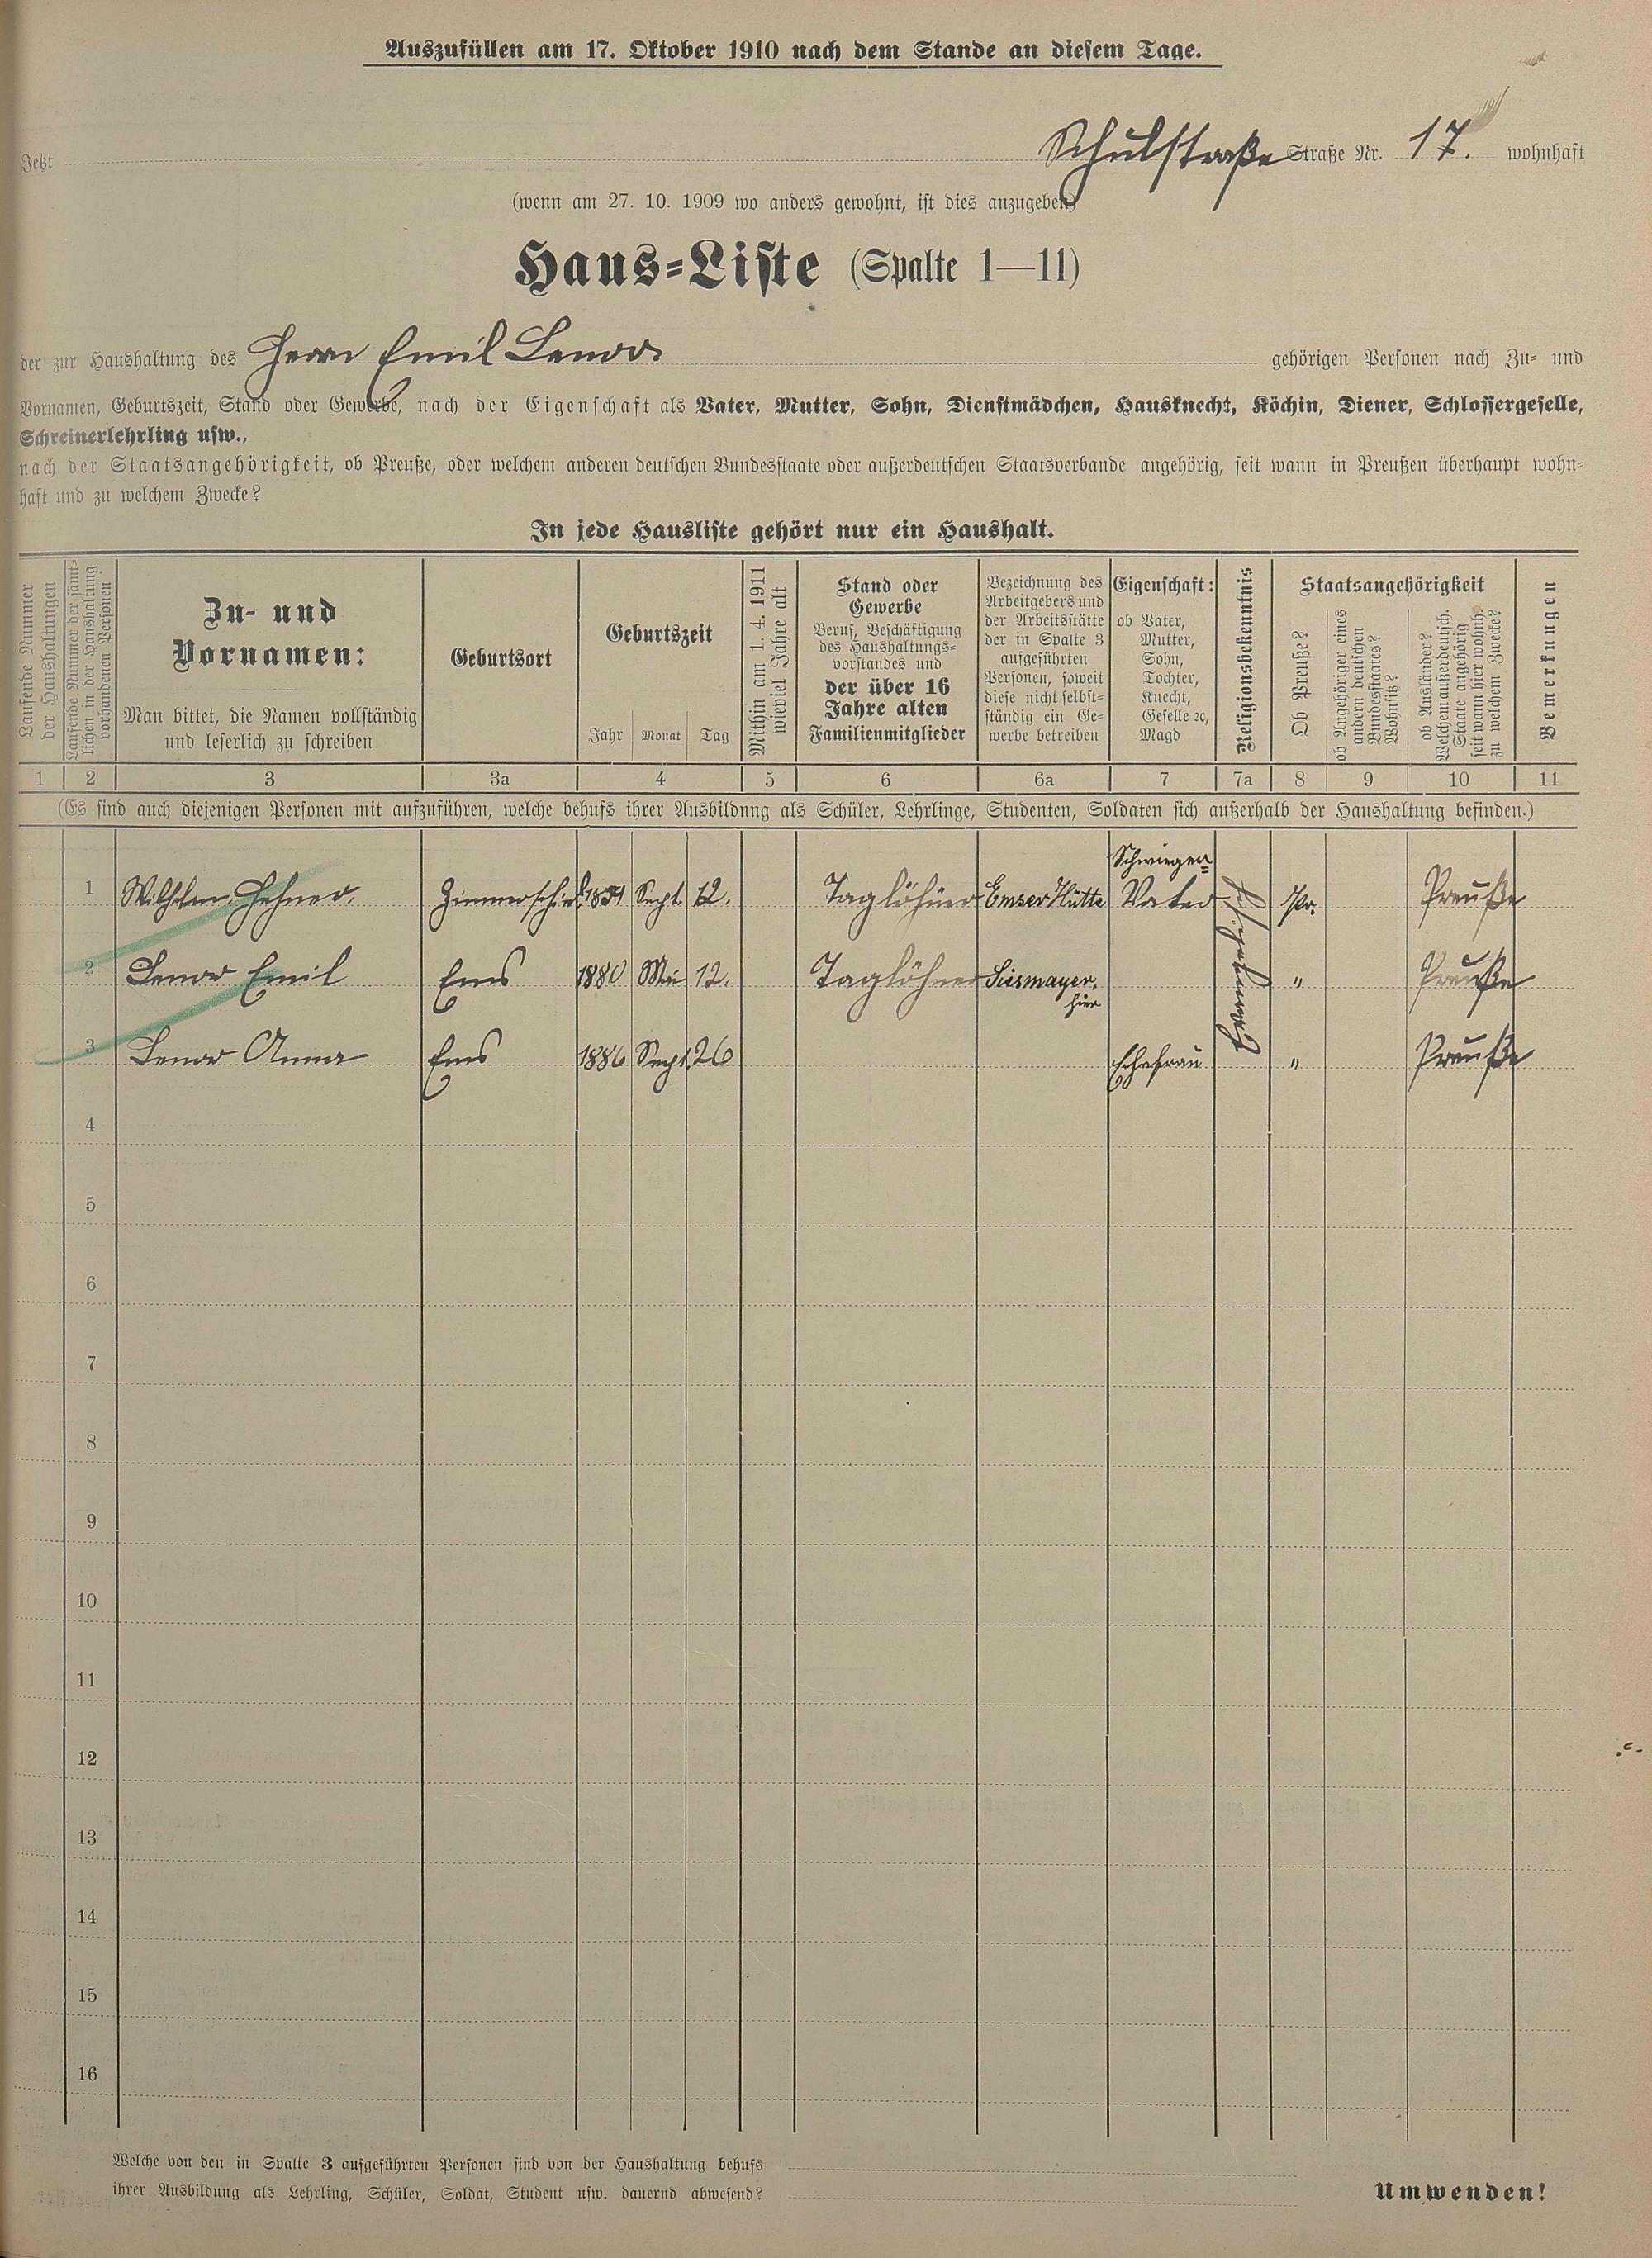 Auszufüllen am 17. Oktober 1910 nach dem Stande an diesem Tage.
Jetzt Schulstraße Straße Nr. 17. wohnhaft
(wenn am 27. 10. 1909 wo anders gewohnt, ist dies anzugeben)
Haus-Liste (Spalte 1—11)
der zur Haushaltung des Herrn Emil gehörigen Personen nach Zu- und
Vornamen, Geburtszeit, Stand oder Gewerbe, nach der Eigenschaft als Vater, Mutter, Sohn, Dienstmädchen, Hausknecht, Köchin, Diener, Schlossergeselle,
Schreinerlehrling usw.,
nach der Staatsangehörigkeit, ob Preuße, oder welchem anderen deutschen Bundesstaate oder außerdeutschen Staatsverbande angehörig, seit wann in Preußen überhaupt wohn-
haft und zu welchem Zwecke?
In jede Hausliste gehört nur ein Haushalt.
Laufende Nummer
der Haushaltungen
Laufende Nummer der sämt-
lichen in der Haushaltung
vorhandenen Personen
Zu- und
Vornamen:
Man bittet, die Namen vollständig
und leserlich zu schreiben
Geburtsort
Geburtszeit
Jahr Monat Tag
Mithin am 1. 4. 1911
wieviel Jahre alt
Stand oder
Gewerbe
Beruf, Beschäftigung
des Haushaltungs-
vorstandes und
der über 16
Jahre alten
Familienmitglieder
Bezeichnung des
Arbeitgebers und
der Arbeitsstätte
der in Spalte 3
aufgeführten
Personen, soweit
diese nicht selbst-
ständig ein Ge-
werbe betreiben
Eigenschaft:
ob Vater,
Mutter,
Sohn,
Tochter,
Knecht,
Geselle ꝛc,
Magd
Religionsbekenntnis
Staatsangehörigkeit
Ob Preuße?
ob Angehöriger eines
andern deutschen
Bundesstaates?
Wohnsitz?
ob Ausländer?
Welchem außerdeutsch.
Staate angehörig
seit wann hier wohnh.
zu welchem Zwecke?
Bemerkungen
1 2 3 3a 4 5 6 6a 7 7a 8 9 10 11
(Es sind auch diejenigen Personen mit aufzuführen, welche behufs ihrer Ausbildung als Schüler, Lehrlinge, Studenten, Soldaten sich außerhalb der Haushaltung befinden.)
Schwieger=
1 Wilhelm Sept. 12. Taglöhner Emser Hütte Vater Pr. Preuße
2 Emil Ems 1880 Mai 12. Taglöhner Siesmayer. " Preuße
hier
3 Anna Ems 1886 Sept. 26 Ehefrau " Preuße
4
5
6
7
8
9
10
11
12
13
14
15
16
Welche von den in Spalte 3 aufgeführten Personen sind von der Haushaltung behufs
ihrer Ausbildung als Lehrling, Schüler, Soldat, Student usw. dauernd abwesend?
Umwenden!